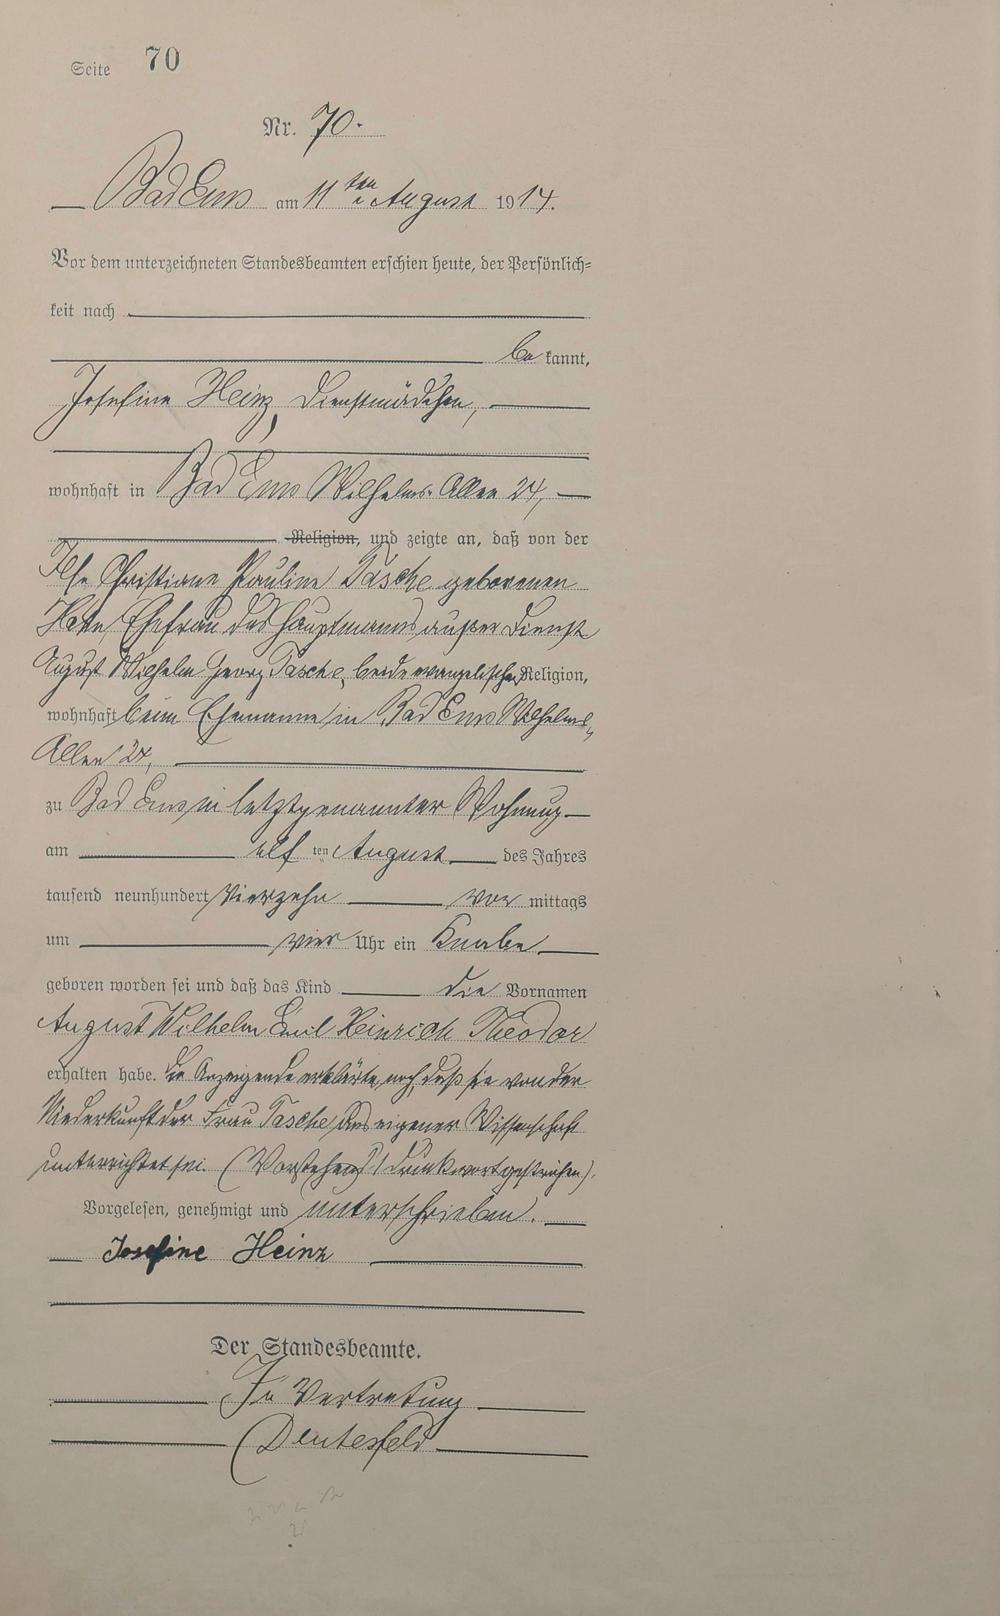 Seite 70
Nr. 70.
Bad Ems am 11ten August 1914.
Vor dem unterzeichneten Standesbeamten erschien heute, der Persönlich=
keit nach
be kannt,
Josefine Heinz, Dienstmädchen,
wohnhaft in Bad Ems Wilhelms-Allee 24,
Religion, und zeigte an, daß von der
Christiane Pauline Tasche geborenen
Ehefrau des Hauptmanns außer Dienst
August Wilhelm Georg Tasche, beide evangelischer Religion,
wohnhaft beim Ehemanne in Bad Ems Wilhelms-
Allee 24,
zu Bad Ems in letztgenannter Wohnung
am elf ten August des Jahres
tausend neunhundert vierzehn vor mittags
um vier Uhr ein Knabe
geboren worden sei und daß das Kind die Vornamen
August Wilhelm Emil Heinrich Theodor
erhalten habe. Die Anzeigende erklärte noch, daß sie von der
Niederkunft der Frau Tasche aus eigener Wissenschaft
unterrichtet sei. (Vorstehend 1 Druckwort gestrichen).
Vorgelesen, genehmigt und unterschrieben.
Josefine Heinz
Der Standesbeamte.
In Vertretung